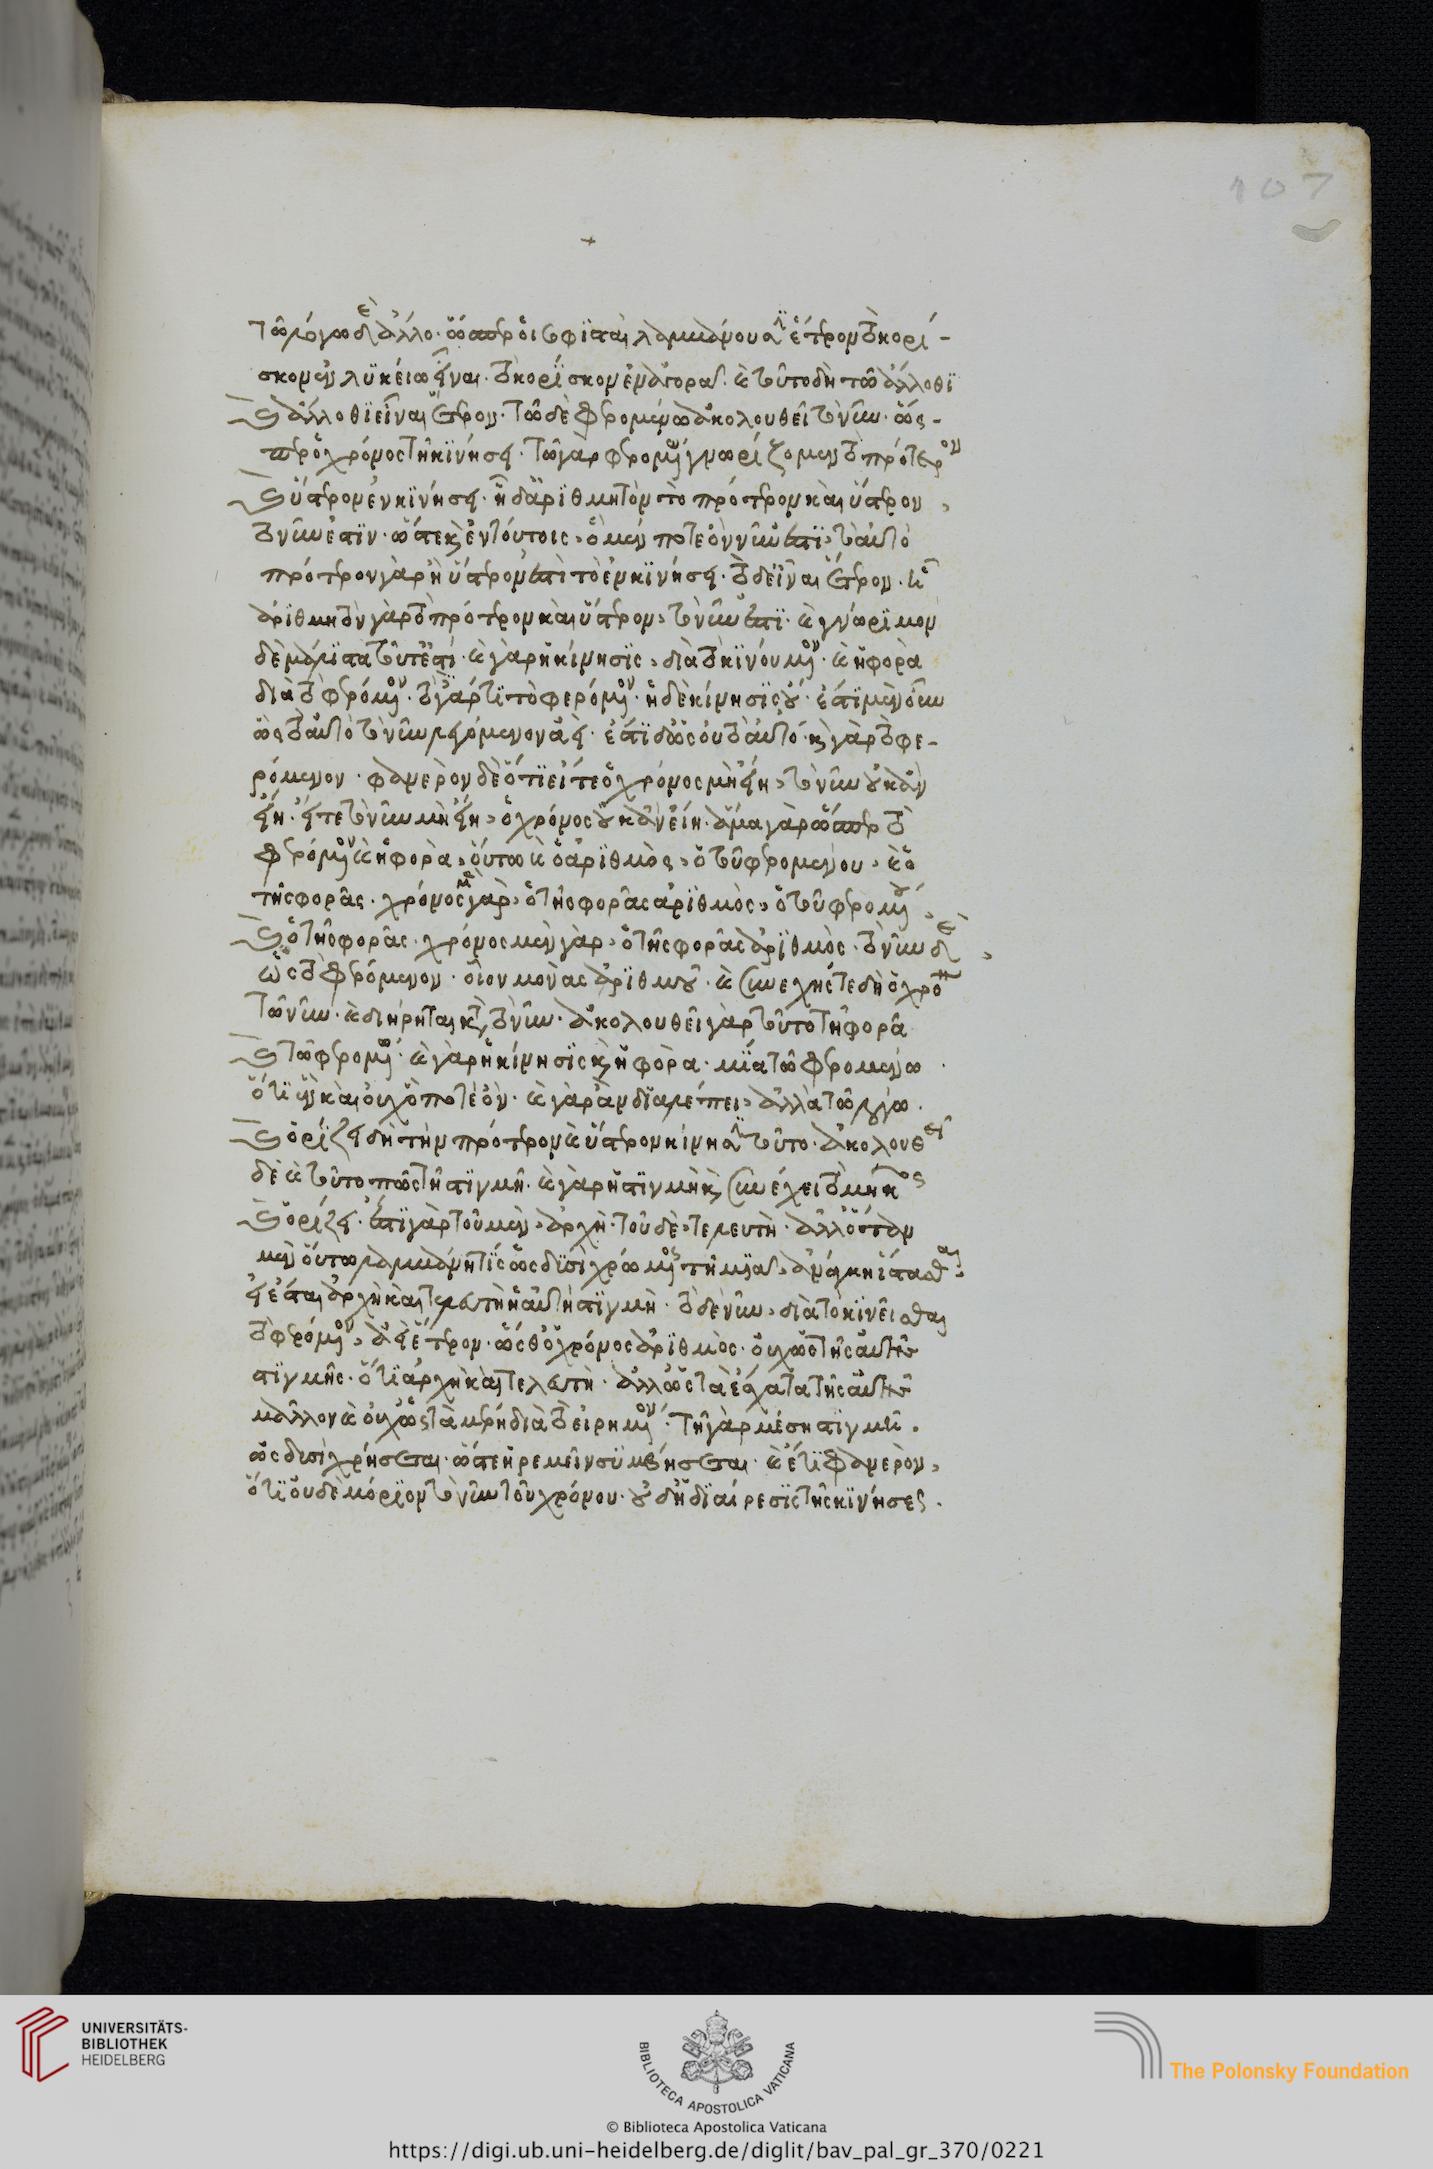 τῶ λόγω δὲ ἄλλο· ὥσπερ οἱ σοφϊσταὶ λαμβάνουσϊν ἕτερον τὸ κορί-
σκον ἐν λϋκείω εἶναι· τὸ κορΐσκον ἐν ἀγορᾶ· καὶ τοῦτο δὴ τῶ ἄλλοθϊ
καὶ ἄλλοθϊ εἶναι ἕτερον· τῶ δὲ φερομένω ἀκολουθεῖ τὸ νῦν· ὥς-
περ ὁ χρόνος τῆ κϊνήσει· τῶ γὰρ φερομένω γνωρίζομεν τὸ πρότερον
καὶ ὕστερον ἐν κϊνήσει· ἧ δ' ἀρϊθμητὸν τὸ πρότερον καὶ ὕστερον,
τὸ νῦν ἐστϊν· ὥστε καὶ ἐν τούτοις, ὃ μέν ποτε ὂν νῦν ἐστϊ, τὸ αὐτό
πρότερον γὰρ ἢ ὕστερον ἐστὶ τὸ ἐν κϊνήσει· τὸ δ' εἶναι ἕτερον· ἧ
ἀρϊθμητὸν γὰρ τὸ πρότερον καὶ ὕστερον, τὸ νῦν ἐστϊ· καὶ γνώρϊμον
δὲ μάλϊστα τοῦτ' ἐστί· καὶ γὰρ ἡ κίνησϊς, διὰ τὸ κϊνούμενον· καὶ ἡ φορὰ
διὰ τὸ φερόμενον· τόδε γάρ τϊ τὸ φερόμενον· ἡ δὲ κίνησϊς οὔ· ἐστϊ μὲν οὖν
ὡς τὸ αὐτὸ τὸ νῦν λεγόμενον ἀεὶ· ἐστϊ δ' ὡς οὐ τὸ αὐτό· καὶ γὰρ τὸ φε-
ρόμενον· φανερὸν δὲ ὅτϊ εἴτε ὁ χρόνος μὴ εἴη, τὸ νῦν οὐκ ἂν
εἴη· εἴτε τὸ νῦν μὴ εἴη, ὁ χρόνος οὐκ ἂν εἴη· ἅμα γὰρ ὥσπερ τὸ
φερόμενον καὶ ἡ φορὰ, οὕτω καὶ ὁ ἀρϊθμὸς, ὁ τοῦ φερομένου, καὶ ὁ
τῆς φορᾶς· χρόνος μὲν γὰρ, ὁ τῆς φορᾶς ἀρϊθμὸς, ὁ τοῦ φερομένου,
καὶ ὁ τῆς φορᾶς· χρόνος μὲν γὰρ, ὁ τῆς φορᾶς ἀρϊθμὸς· τὸ νῦν δὲ,
ὡς τὸ φερόμενον· οἷον μονὰς ἀρϊθμοῦ· καὶ συνεχής τε δὴ ὁ χρόνος
τῶ νῦν· καὶ διήρηται κατὰ τὸ νῦν· ἀκολουθεῖ γὰρ τοῦτο τῆ φορᾶ
καὶ τῶ φερομένω· καὶ γὰρ ἡ κίνησϊς καὶ ἡ φορὰ· μία τῶ φερομένω·
ὅτϊ ἓν καὶ οὐχ ὅ ποτε ὄν· καὶ γὰρ ἂν δϊαλείπει, ἀλλὰ τῶ λόγω·
καὶ ὁρίζει δὴ τὴν πρότερον καὶ ὕστερον κίνησϊν τοῦτο· ἀκολουθεῖ
δὲ καὶ τοῦτο πῶς τῆ στϊγμῆ· καὶ γὰρ ἡ στϊγμὴ καὶ συνέχει τὸ μῆκος
καὶ ὁρίζει· ἐστϊ γὰρ τοῦ μὲν, ἀρχὴ· τοῦ δὲ, τελευτὴ· ἀλλ' ὅταν
μὲν οὕτω λαμβάνη τϊς ὡς δϊσὶ χρώμενος τῆ μϊᾶ, ἀνάγκη ἵστασθαι,
εἰ ἔσται ἀρχὴ καὶ τελευτὴ ἡ αὐτὴ στϊγμὴ· τὸ δὲ νῦν, διὰ τὸ κϊνεῖσθαι
τὸ φερόμενον, ἀεὶ ἕτερον· ὥσθ' ὁ χρόνος ἀρϊθμὸς· οὐχ ὡς τῆς αὐτῆς
στϊγμῆς· ὅτϊ ἀρχὴ καὶ τελευτὴ· ἀλλ' ὡς τὰ ἔσχατα τῆς αὐτῆς
μᾶλλον καὶ οὐχ ὡς τὰ μέρη διὰ τὸ εἰρημένον· τῆ γὰρ μέση στϊγμῆ·
ὡς δυσὶ χρήσεται· ὥστε ἠρεμεῖν συμβήσεται· καὶ ἔτϊ φανερὸν,
ὅτϊ οὐδὲ μόρϊον τὸ νῦν τοῦ χρόνου· οὐδ' ἡ δϊαίρεσϊς τῆς κϊνήσεως·
107
UNIVERSITÄTS-
BIBLIOTHEK
HEIDELBERG
BIBLIOTECA APOSTOLICA VATICANA
The Polonsky Foundation
© Biblioteca Apostolica Vaticana
https://digi.ub.uni-heidelberg.de/diglit/bav_pal_gr_370/0221